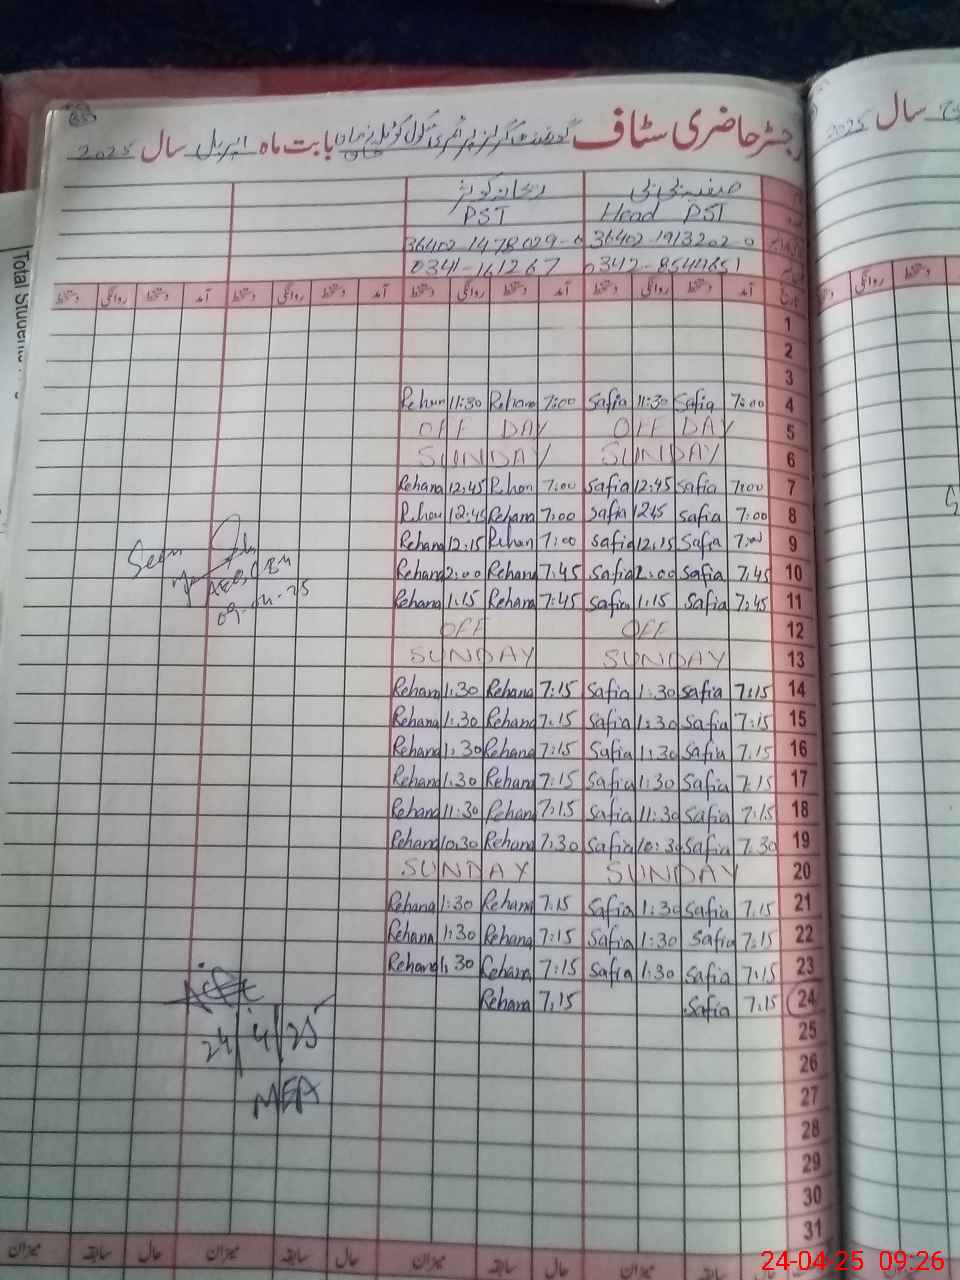 رجسٹر حاضری سٹاف گورنمنٹ گرلز پرائمری سکول بابت ماہ اپریل سال 2025
سال 2025
صفیہ بی بی ریحانہ کوثر
Head PST PST
36402 1913202 0 36402 1478029-0
0342-8544651 0341-161267
تاریخ آمد دستخط روانگی دستخط آمد دستخط روانگی دستخط آمد دستخط روانگی دستخط آمد دستخط روانگی دستخط
روانگی دستخط
Total Students
1
2
3
Rehan 11:30 Rehana 7:00 Safia 11:30 Safia 7:00 4
OFF DAY OFF DAY 5
SUNDAY SUNDAY 6
Rehana 12:45 Rehan 7:00 Safia 12:45 Safia 7:00 7
Rehan 12:45 Rehana 7:00 Safia 1245 Safia 7:00 8
Rehana 12:15 Rehan 7:00 Safia 12:15 Safia 7:00 9
Rehana 2:00 Rehana 7:45 Safia 2:00 Safia 7:45 10
Rehana 1:15 Rehana 7:45 Safia 1:15 Safia 7:45 11
OFF OFF 12
SUNDAY SUNDAY 13
Rehana 1:30 Rehana 7:15 Safia 1:30 Safia 7:15 14
Rehana 1:30 Rehana 7:15 Safia 1:30 Safia 7:15 15
Rehana 1:30 Rehana 7:15 Safia 1:30 Safia 7:15 16
Rehana 1:30 Rehana 7:15 Safia 1:30 Safia 7:15 17
Rehana 11:30 Rehana 7:15 Safia 11:30 Safia 7:15 18
Rehana 10:30 Rehana 7:30 Safia 10:30 Safia 7:30 19
SUNDAY SUNDAY 20
Rehana 1:30 Rehana 7:15 Safia 1:30 Safia 7:15 21
Rehana 1:30 Rehana 7:15 Safia 1:30 Safia 7:15 22
Rehana 1:30 Rehana 7:15 Safia 1:30 Safia 7:15 23
Rehana 7:15 Safia 7:15 24
25
26
27
28
29
30
31
Seen
09-04-25
24/4/25
MEA
میزان سابقہ حال میزان سابقہ حال میزان سابقہ حال میزان سابقہ حال
24-04-25 09:26